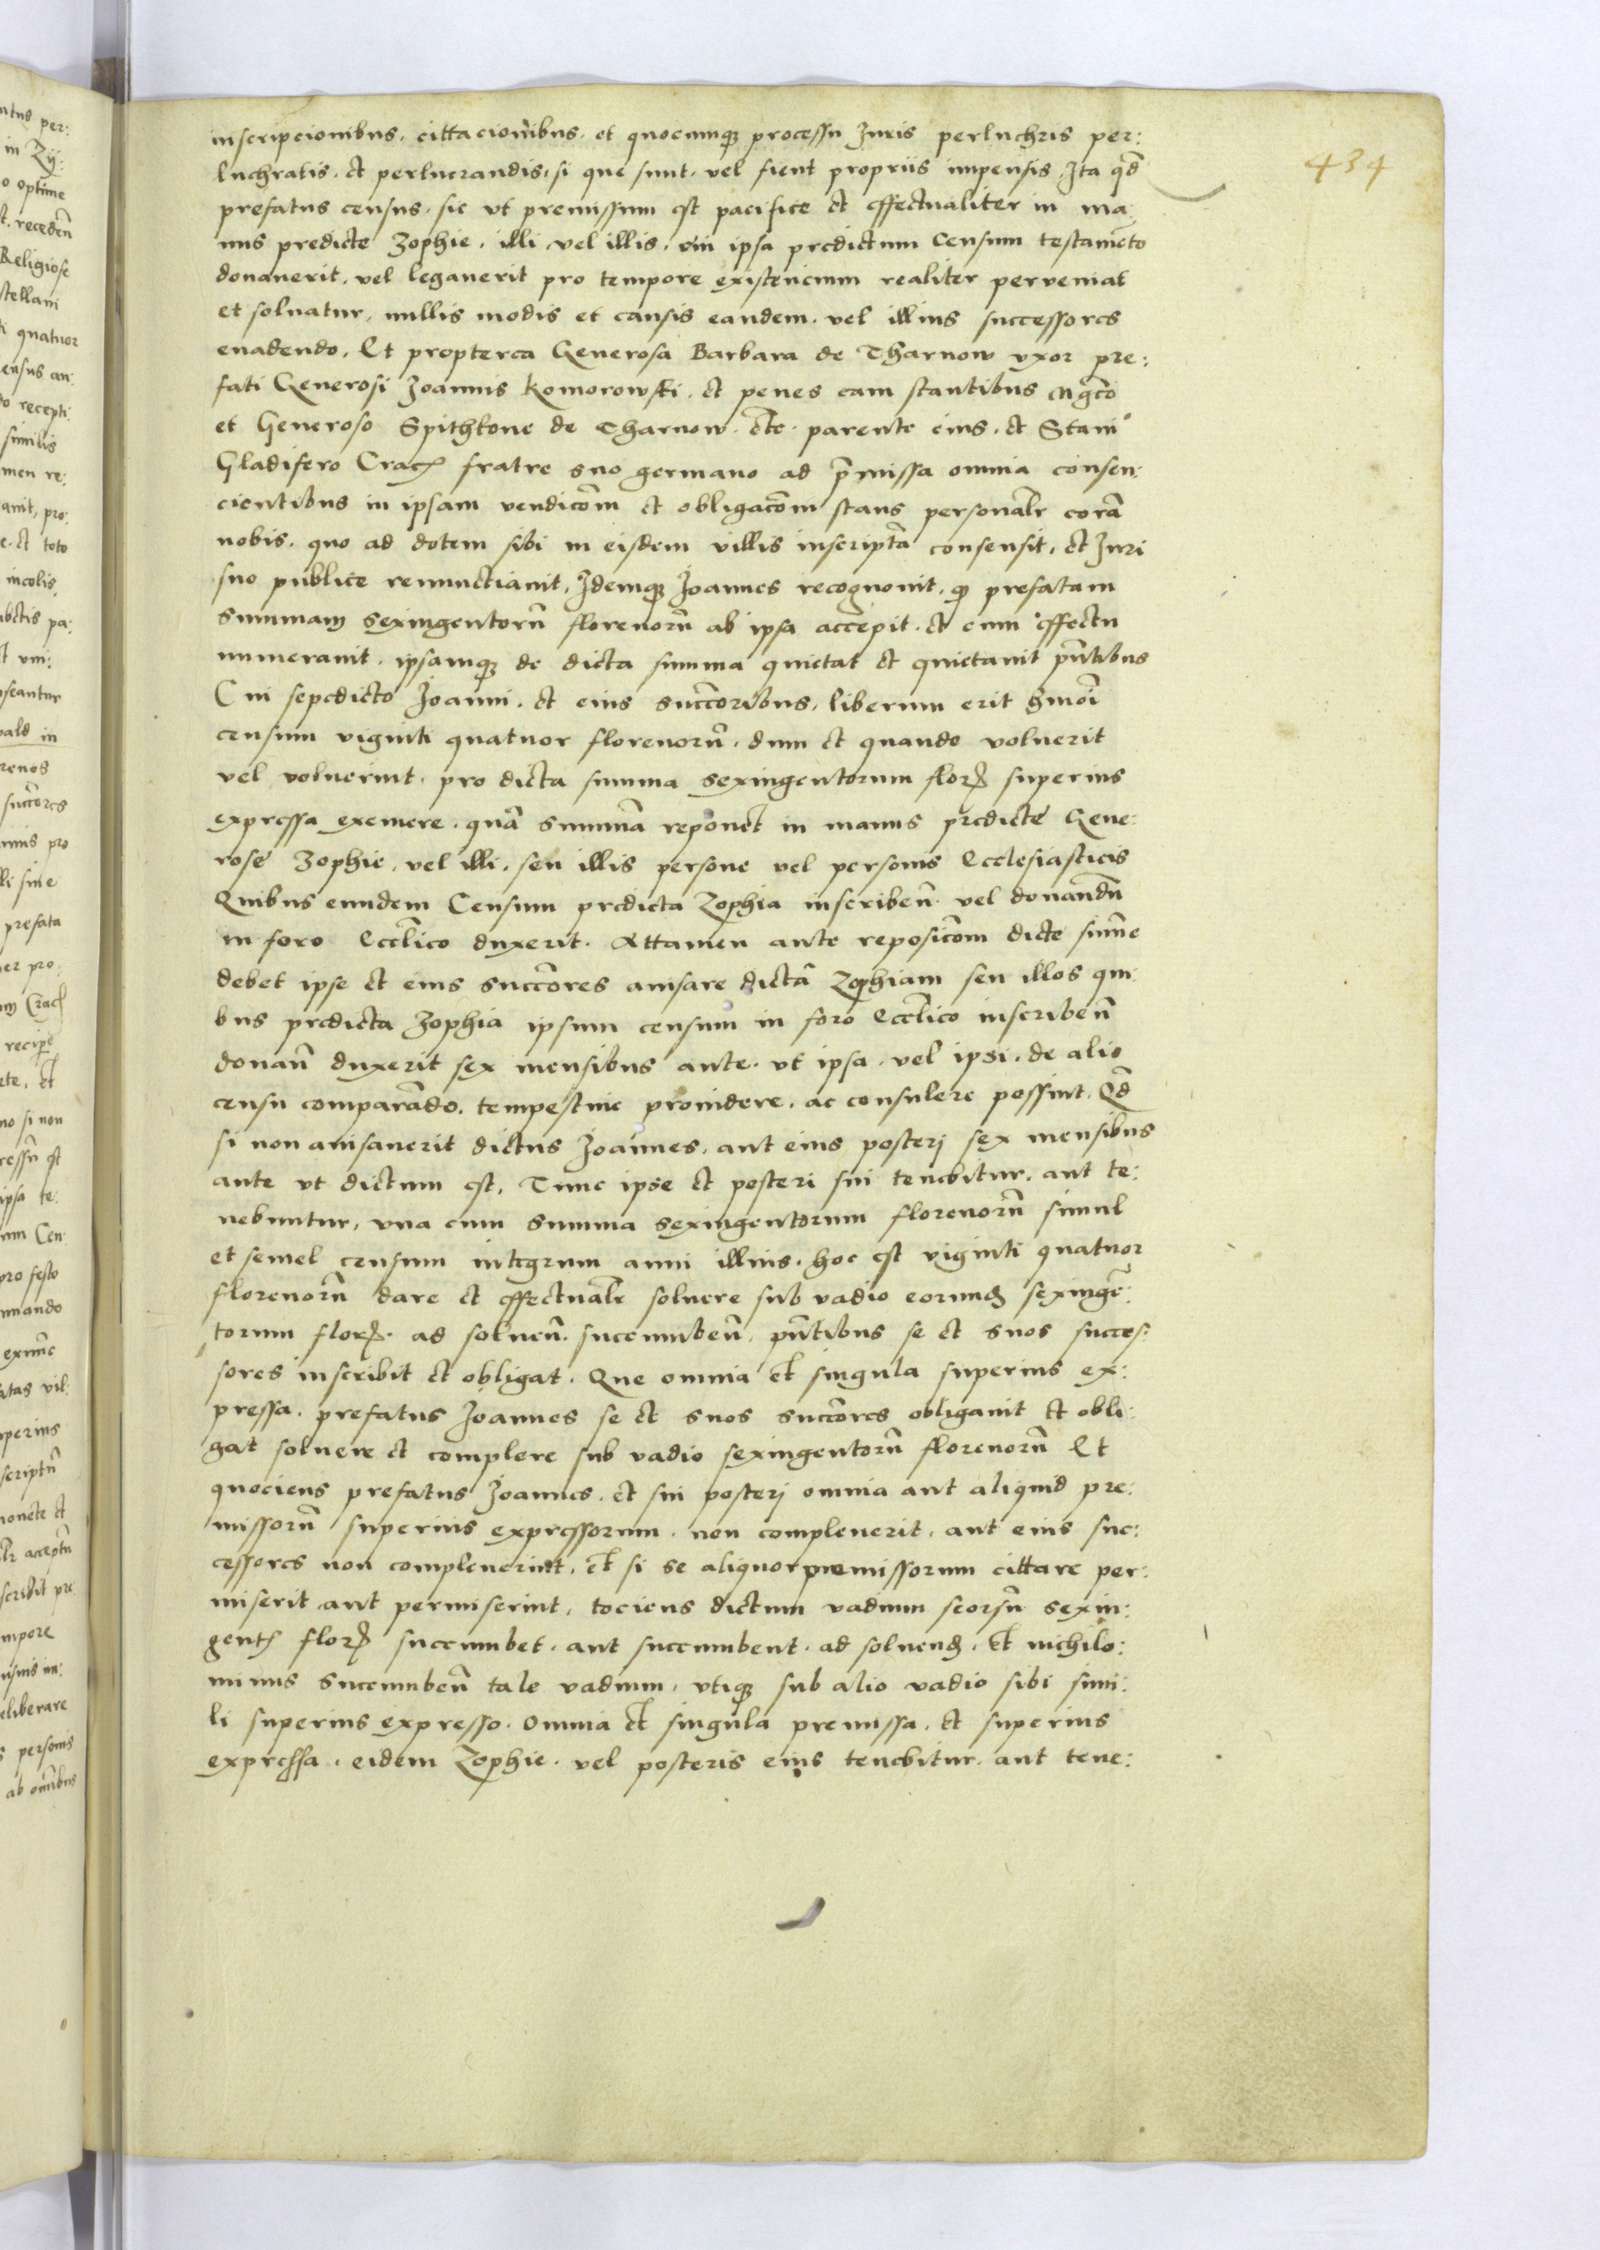 434
inscripcionibus. cittacionibus. et quocumq; processu Iuris perluchris per:
luchratis. et perlucrandis. si que sunt. vel fient propriis impensis. Ita qd
prefatus census. sic vt premissum est pacifice et effectualiter in ma
nus predicte Zophie. illi vel illis. cui ipsa predictum Censum testameto
donauerit. vel legauerit pro tempore existencium realiter perveniat
et soluatur. nullis modis et causis eandem. vel illius successores
euadendo. Et propterea Generosa Barbara de Tharnow vxor pre:
fati Generosi Joannis Komorowski. et penes eam stantibus Mgco
et Generoso Spithkone de Tharnow. etc. parente eius. et Stanis
Gladifero Crac fratre suo germano ad pmissa omnia consen:
cientibus in ipsam vendicom et obligacom stans personalr cora
nobis. quo ad dotem sibi in eisdem villis inscripta consensit. et Iuri
suo publice renunctiauit. Idemq; Joannes recognouit. q prefatam
summam sexingentoru florenoru ab ipsa accepit. et cum effectu
numerauit. ipsamq; de dicta summa quietat et quietauit pntibus
Cui sepedicto Joanni. et eius succoribus. liberum erit hmoi
censum viginti quatuor florenoru. dum et quando voluerit
vel voluerint. pro dicta summa sexingentorum flor superius
expressa exemere. qua summa reponet in manus predicte Gene:
rose Zophie. vel illi. seu illis persone vel personis Ecclesiasticis
Quibus eundem Censum predicta Zophia inscriben vel donandu
in foro Ecclico duxerit. Attamen ante reposicom dicte summe
debet ipse et eius succores auisare dicta Zophiam seu illos qui
bus predicta Zophia ipsum censum in foro Ecclico inscriben
donan duxerit sex mensibus ante. vt ipsa. vel ipsi. de alio
censu comparado. tempestiue prouidere. ac consulere possint. Qd
si non auisauerit dictus Joannes. aut eius posterj sex mensibus
ante vt dictum est. Tunc ipse et posteri sui tenebitur. aut te:
nebuntur. vna cum summa sexingentorum florenoru simul
et semel censum integrum anni illius. hoc est viginti quatuor
florenoru dare et effectualr soluere sub vadio eorund sexinge:
torum flor. ad soluen. succumben. pntibus se et suos succes:
sores inscribit et obligat. Que omnia et singula superius ex:
pressa. prefatus Joannes se et suos succores obligauit et obli:
gat soluere et complere sub vadio sexingentoru florenoru Et
quociens prefatus Joannes. et sui posterj omnia aut aliquid pre:
missoru superius expressorum. non compleuerit. aut eius suc:
cessores non compleuerint. et si se aliquor premissorum cittare per:
miserit aut permiserint. tociens dictum vadium seorsu sexin:
gent flor succumbet. aut succumbent. ad soluend. et nichilo:
minus succumben tale vadium. vtiq; sub alio vadio sibi simi:
li superius expresso. omnia et singula premissa. et superius
expressa. eidem Zophie. vel posteris eius tenebitur. aut tene: